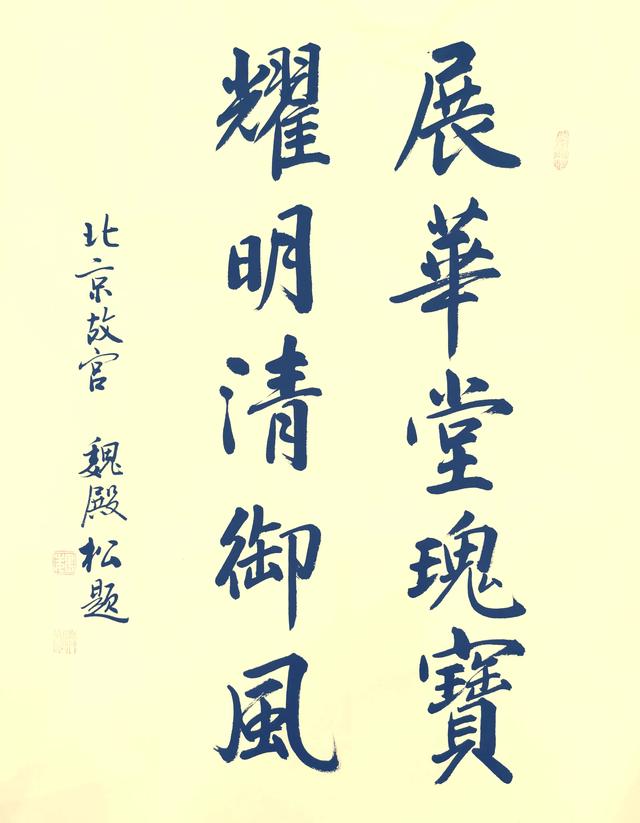 展華堂瑰寶
耀明清御風
北京故宫 魏殿松题